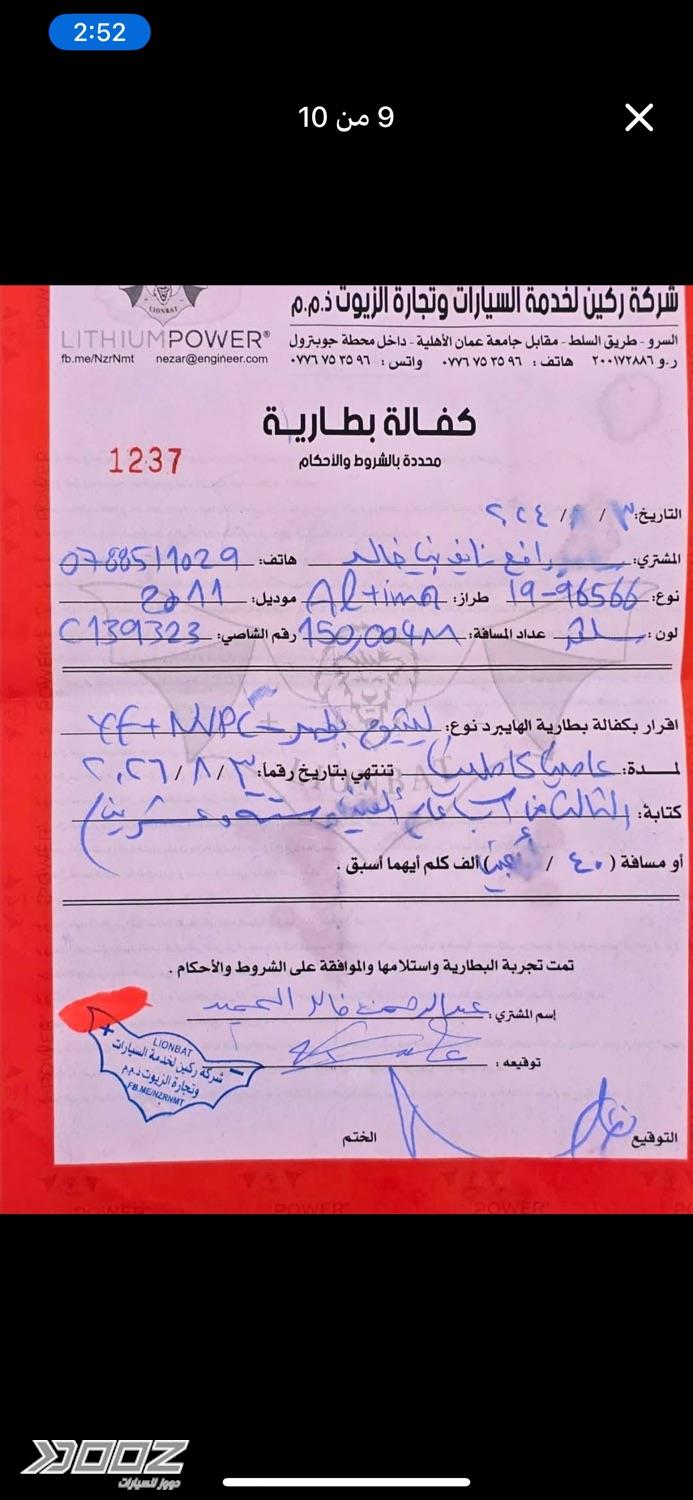 2:52
9 من 10
شركة ركين لخدمة السيارات وتجارة الزيوت ذ.م.م
LIONBAT
LITHIUMPOWER®
fb.me/NzrNmt nezar@engineer.com
السرو - طريق السلط - مقابل جامعة عمان الأهلية - داخل محطة جوبترول
ر.و ٢٠٠١٧٢٨٨٦ هاتف : ٠٧٧٦ ٧٥ ٣٥ ٩٦ واتس : ٠٧٧٦ ٧٥ ٣٥ ٩٦
كفـالة بطـاريـة
محددة بالشروط والأحكام
1237
التاريخ: ٣ / ٨ /
المشتري: خالد هاتف: 0788511029
نوع: 19-96566 طراز: Altima موديل: 2011
لون : عداد المسافة: 150,004M رقم الشاصي: C139323
اقرار بكفالة بطارية الهايبرد نوع:
لمـــدة: تنتهي بتاريخ رقماً: ٣ / ٨ / ٢٠٢٦
كتابة: الثالث من آب ستة وعشرين
أو مسافة ( ٤٠ / ) ألف كلم أيهما أسبق .
تمت تجربة البطارية واستلامها والموافقة على الشروط والأحكام .
إسم المشتري : عبدالرحمن
توقيعه :
LIONBAT
شركة ركين لخدمة السيارات
وتجارة الزيوت ذ.م.م
FB.ME/NZRNMT
التوقيع الختم
POWER® POWER® POWER®
DOOZ
دووز للسيارات